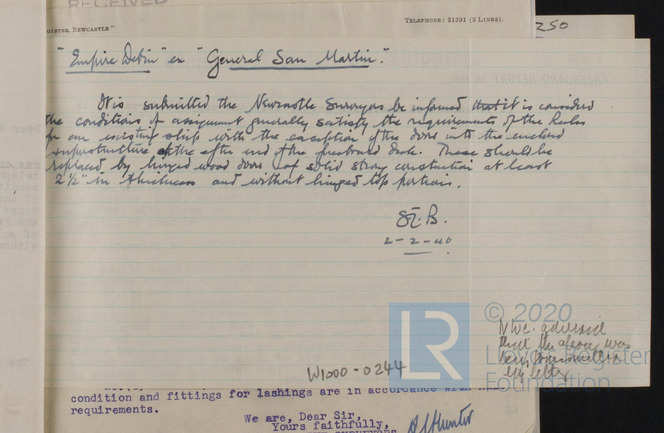 RECEIVED
GISTER, NEWCASTLE"
TELEPHONE: 21391 (2 LINES).
250
"Empire Debin" ex "General San Martin."
It is submitted the Newcastle Surveyors be informed that it is considered
the conditions of assignment generally satisfy the requirements of the Rules
for an existing ship with the exception of the doors into the enclosed
superstructure at the after end of the freeboard deck. These should be
replaced by hinged wood doors of solid strong construction at least
2½" in thickness and without hinged top portions.
B.
2-2-40
© 2020
LR
Lloyd's Register
Foundation
Nwc. advised
that the above was
being
letter
W1000-0244
condition and fittings for lashings are in accordance with
requirements.
We are, Dear Sir,
Yours faithfully,